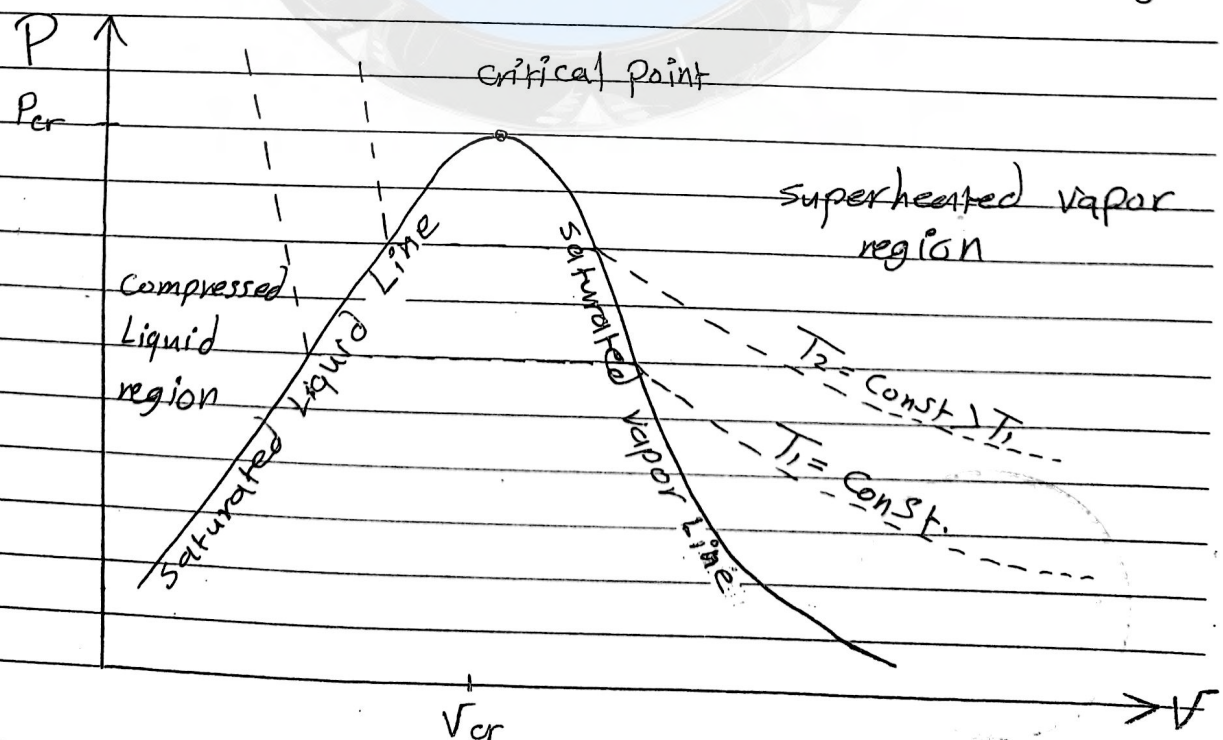 P
Pcr
critical point
superheated vapor
region
Compressed
Liquid
region
Saturated Liquid Line
Saturated vapor Line
T2 = Const. > T1
T1 = Const.
Vcr
V